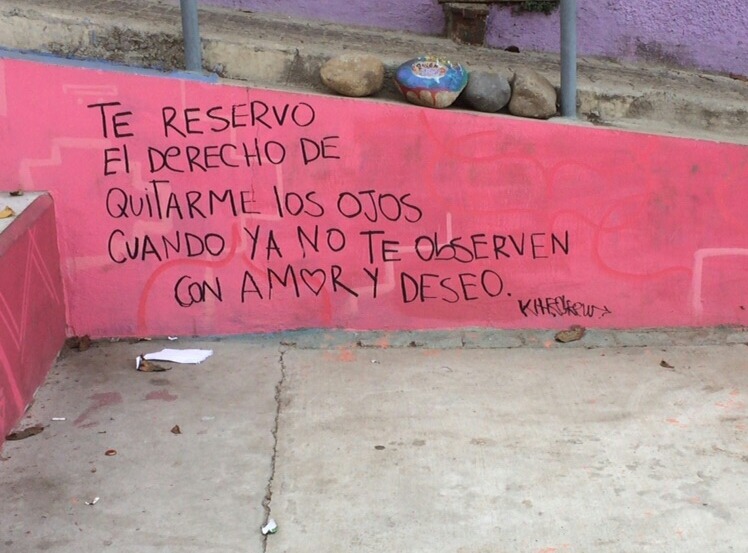 TE RESERVO
El DERECHO DE
QUITARME lOS OJOS
CUANDO YA NO TE ObSERVEN
CON AM♡R Y DESEO.